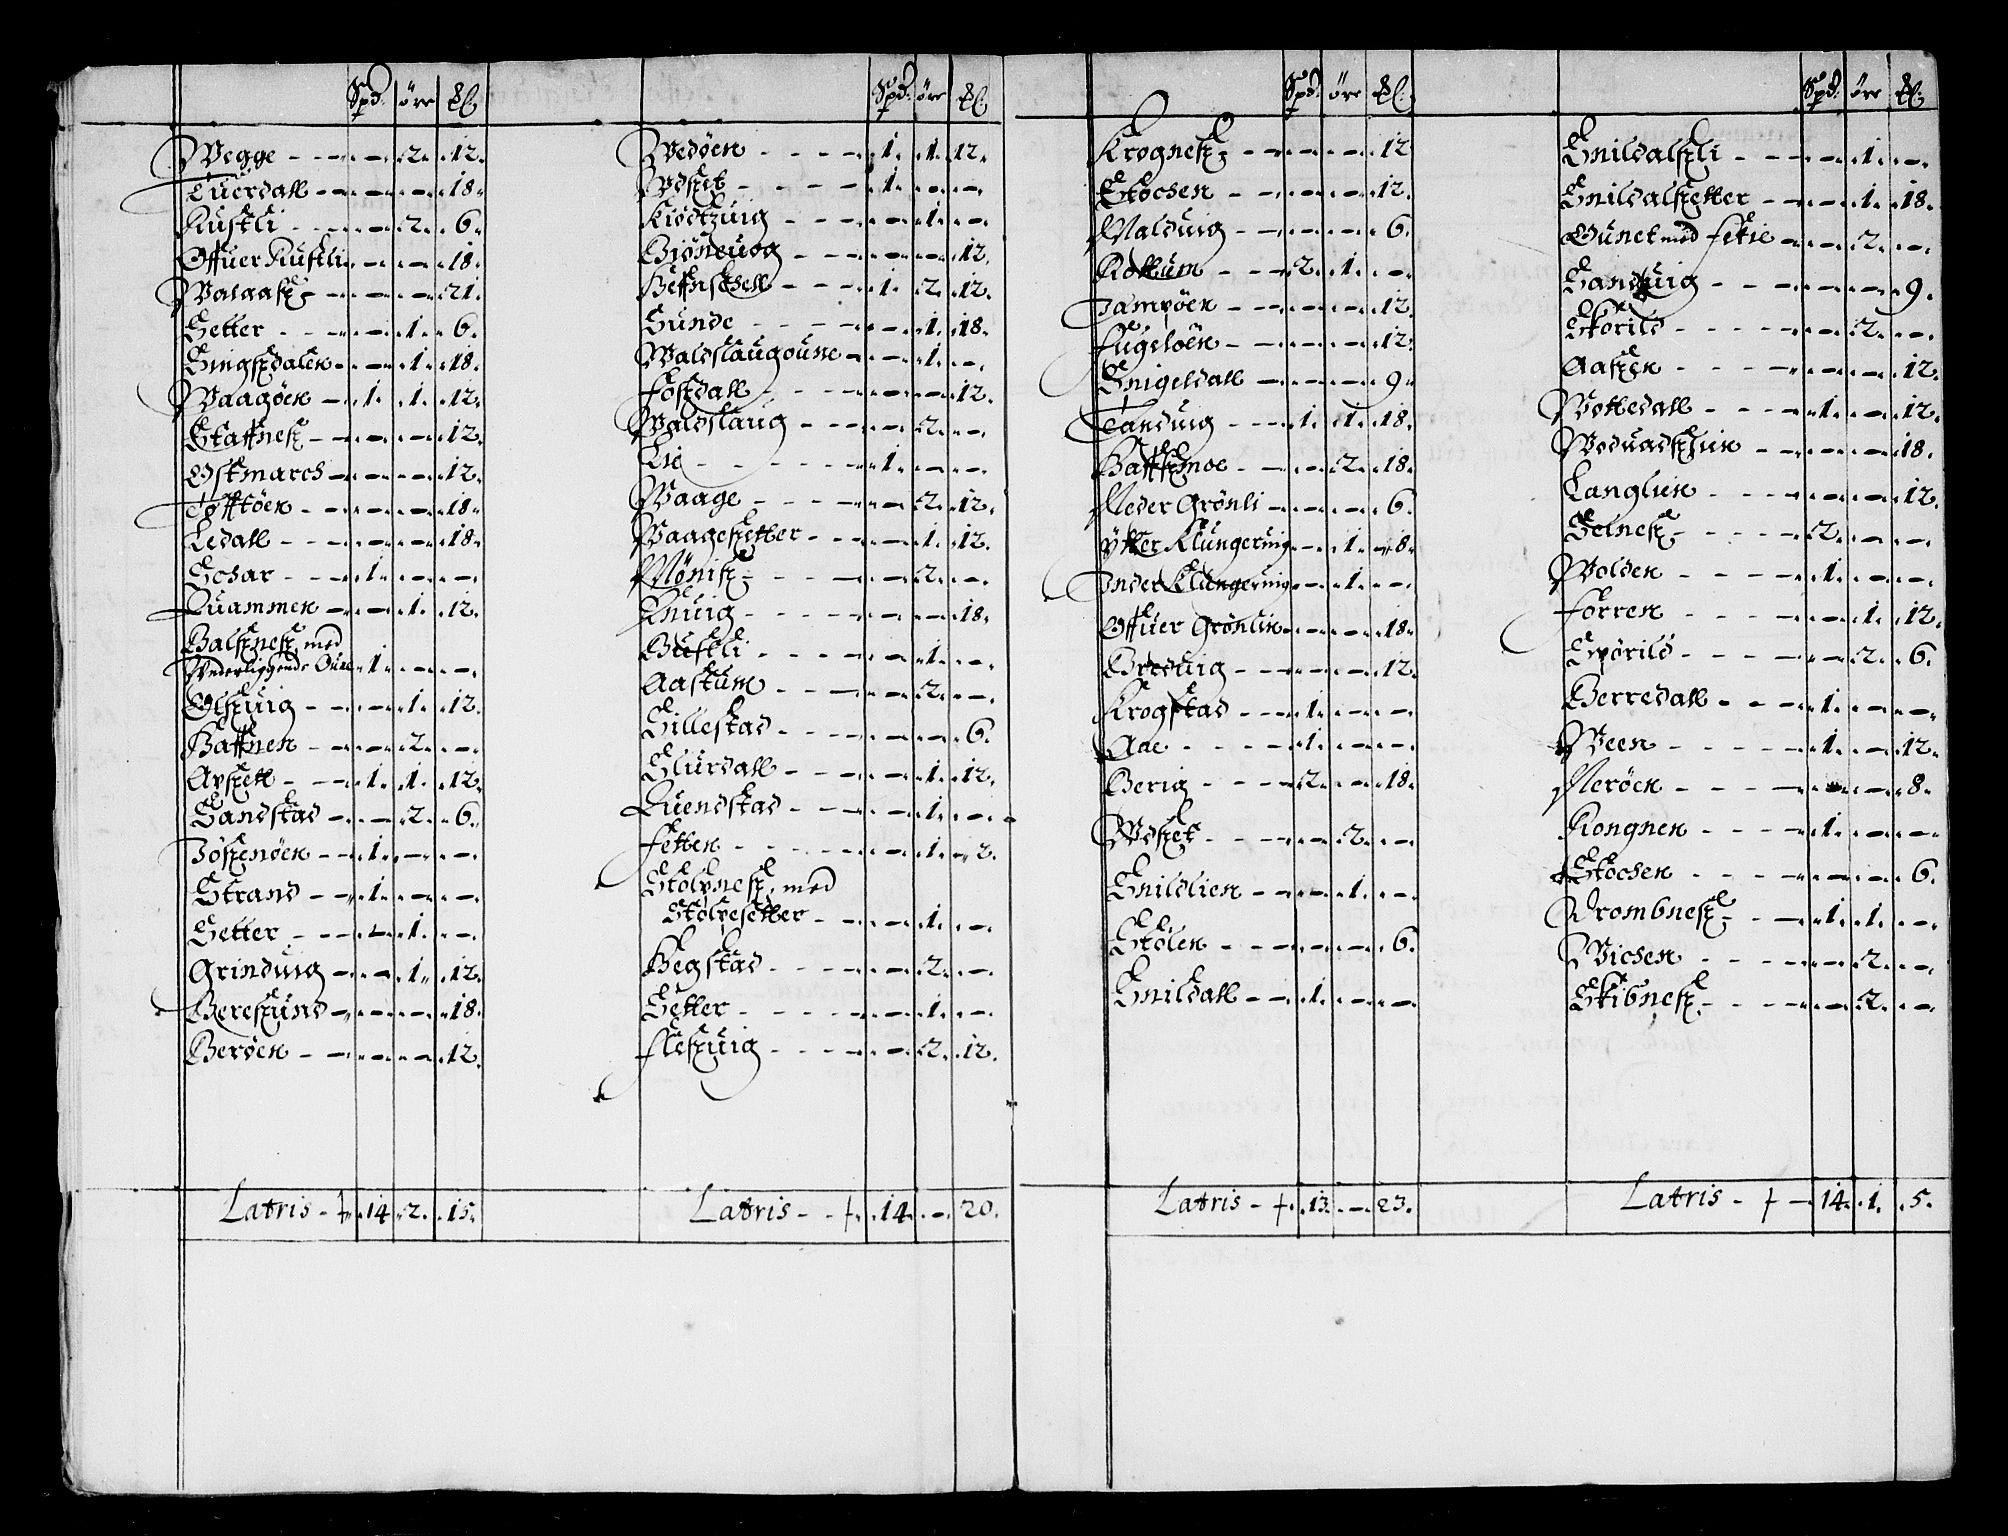 Spd: örr ₰:
Wegge - - - - 2. 12.
Tuerdall - - - - 18.
Rustli - - - 2. 6.
Offuer Rustli - - - 18.
Walaas - - - - 21.
Setter - - - 1. 6.
Singsdalen - - 1. 18.
Waagöen - 1. 1. 12.
Staffnes - - - 12.
Ostmarch - - - 12.
Töfftöen - - - 18.
Ledall - - - - 18.
- - 1. - -
Quammen - - 1. 12.
Balsnes, med
Vnderliggende Öune - 1. - -
Olsuig - - - 1. 12.
Haffnen - - - 2. -
Arsett - - 1. 1. 12.
Sandstad - - 2. 6.
Jössenöen - - 1. - -
Strand - - 1. - -
Setter - - - 1. -
Grinduig - - 1. 12.
Beresund - - - 18.
Beröen - - - - 12.
Latris - 14. 2. 15.
Spd: örr ₰:
Wedöen - - - 1. 1. 12.
Wdset - - - 1. - -
Kiödtzuig - - - - 1. -
Biöneuog - - - - 12.
Heffnschell - - - 1. 2. 12.
Sunde - - - - 1. 18.
Waldslaugoune - - 1. -
Fossdall - - - - 12.
Waldslaug - - - 2. -
Lie - - - - 1. - -
Waage - - - - 2. 12.
Waagesetter - - - 1. 12.
Mönis - - - - 2. -
Knuig - - - - 18.
Bustli - - - - 1. -
Aastum - - - - 2. -
Hillestad - - - - 6.
Slurdall - - - - 1. 12.
Quendstad - - - 1. -
Fetten - - - - 1. 2.
Stolpnes, med
Stolpesetter - - - 1. -
Begstad - - - - 2. -
Setter - - - - 1. -
Flesuig - - - - 2. 12.
Latris - - 14. - 20.
Spd: örr ₰:
Krognes - - - - 12
Stocsen - - - - 12.
Malduig - - - - 6.
Rottum - - - 2. 1. -
Jamtöen - - - - 12.
Fugelöen - - - - 12.
Snigeldall - - - - 9.
Tanduig - - - 1. 1. 18.
Haffsmoe - - - - 2. 18.
Neder Grönli - - - 6.
ytter Klungeruig - - 1. 8.
Inder Klungeruig - - 1. -
Offuer Grönlin - - - 18.
Breduig - - - - 12.
Krogstad - - - 1. - -
Aae - - - - 1. - -
Berig - - - - 2. - 18.
Wdset - - - - 2. -
Snildlien - - - 1. -
Stölen - - - - 6.
Snildall - - 1. - -
Latris - 13. - 23.
Spd: örr ₰:
Snildalsli - - - - 1. -
Snildalsetter - - - 1. 18.
Ounet med fetie - - 2. -
Sanduig - - - - - 9.
Skorild - - - - 2. -
Aasen - - - - - 12.
Wottedall - - - 1. - 12.
Woduadslien - - - 18.
Langlien - - - - - 12.
Selnes - - - 2. - -
Wolden - - - 1. - -
Forren - - - - 1. 12.
Spörild - - - - 2. 6.
Berredall - - - 1. - -
Ween - - - - 1. - 12.
Neröen - - - - - 8.
Rongnen - - - 1. - -
Stocsen - - - - - 6.
Drombnes - - 1. 1. -
Wicsen - - - - 2. -
Skibnes - - - - 2. -
Latris - - 14. 1. 5.